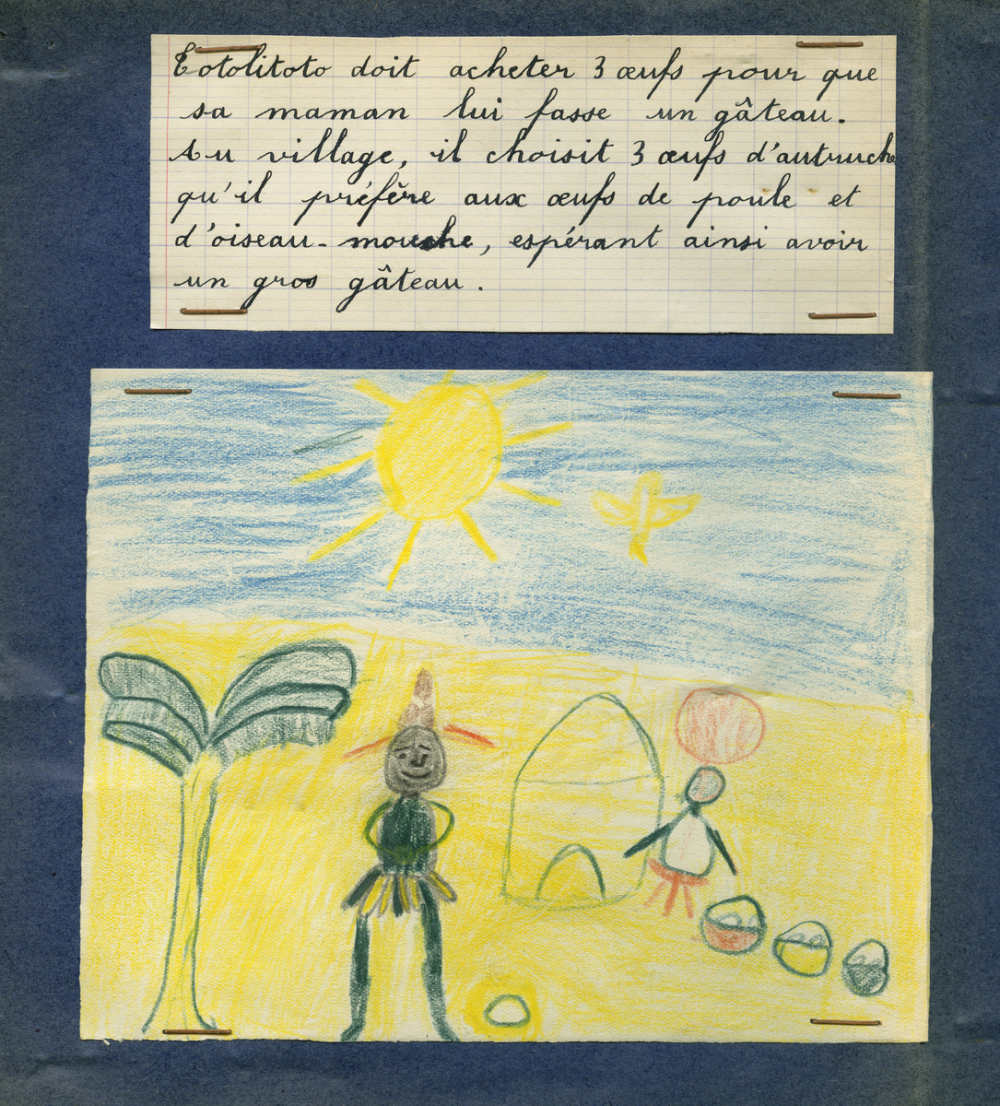 Totolitoto doit acheter 3 œufs pour que
sa maman lui fasse un gâteau.
Au village, il choisit 3 œufs d'autruche
qu'il préfère aux œufs de poule et
d'oiseau-mouche, espérant ainsi avoir
un gros gâteau.